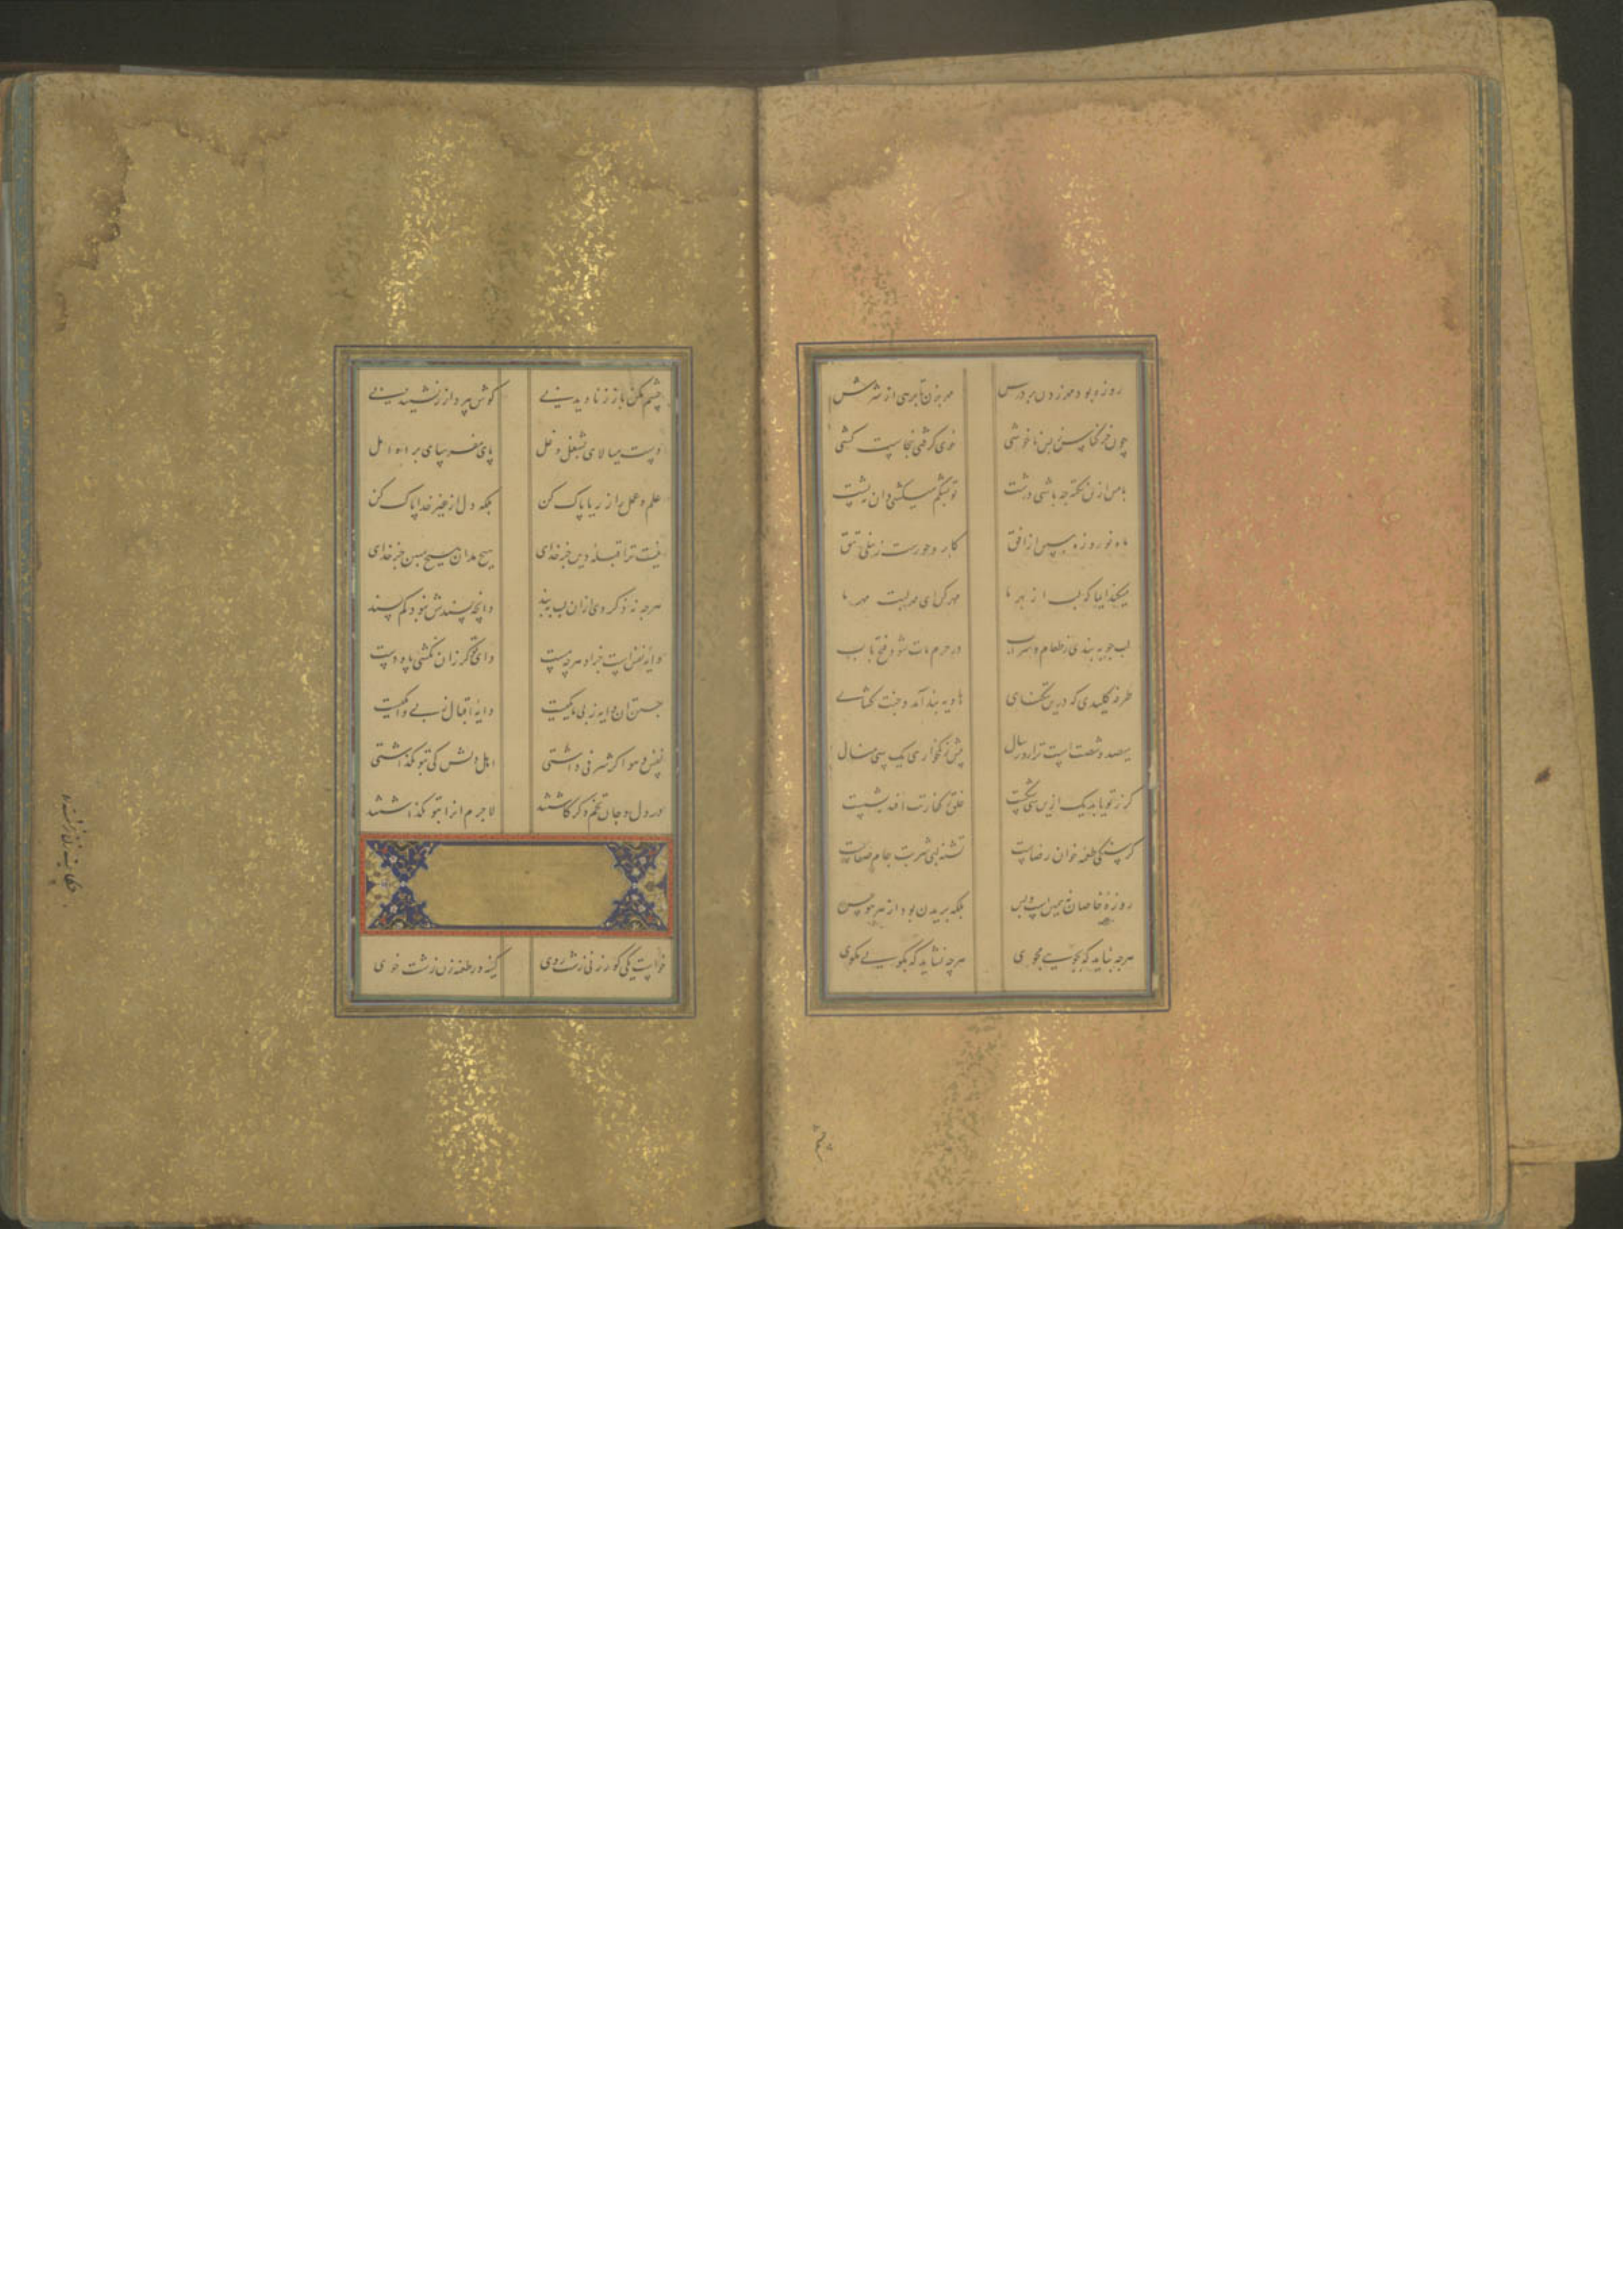 روزه بود موزدن بر درس مهر بزن تا برهی از شرش
چون خر کناس بس ناخوشی خوی گرفتی نجاست کشی
با من ازین نکته چه باشی درشت تو بشکم میکشی و آن بپشت
ماه نو روزه پس از افق کابر و حورست ز نیلی تتق
میکند ایما که لب از بهر ما مهر کن ای مهر لبت مهر ما
لب چو به بندی ز طعام و شراب در حرم مات شود فتح باب
طرفه کلیدی که درین تنگنای هاویه بند آمد و جنت گشای
سیصد و شصت است ترا روز سال بیش نه خواری یک سی منال
گر ز تو باید یک ازین سی شکست خلق کفارت افتد بشست
گرسنگی طعمه خوان رضاست تشنه لبی شربت جام صفاست
روزه خاصان نه همین است و بس بلکه بریدن بود از هر هوس
هرچه نباید که بجویی مجوی هرچه نشاید که بگویی مگوی
چشم
چشم مکن باز ز نادیدنی گوش بپرداز ز نشنیدنی
دست میالای بشغل دغل پای مفرسای براه امل
علم و عمل را ز ریا پاک کن بلکه دل از غیر خدا پاک کن
نیست ترا قبله دین جز خدای هیچ مدان هیچ مبین جز خدای
هرچه نه ذکر وی ازان لب ببند وانچه پسندش نبود کم پسند
دایه نفس است جز او هرچه هست وای تو گر زان نکشی پا و دست
جستن آن دایه ز بی مایگیست دایه اقبال تو بی دایگیست
نفس و هوا گر شرفی داشتی اهل دلش کی بتو بگذاشتی
در دل و جان تخم دگر کاشتند لاجرم آنرا بتو بگذاشتند
خواست یکی کور زنی زشت روی کینه ور طعنه زن زشت خوی